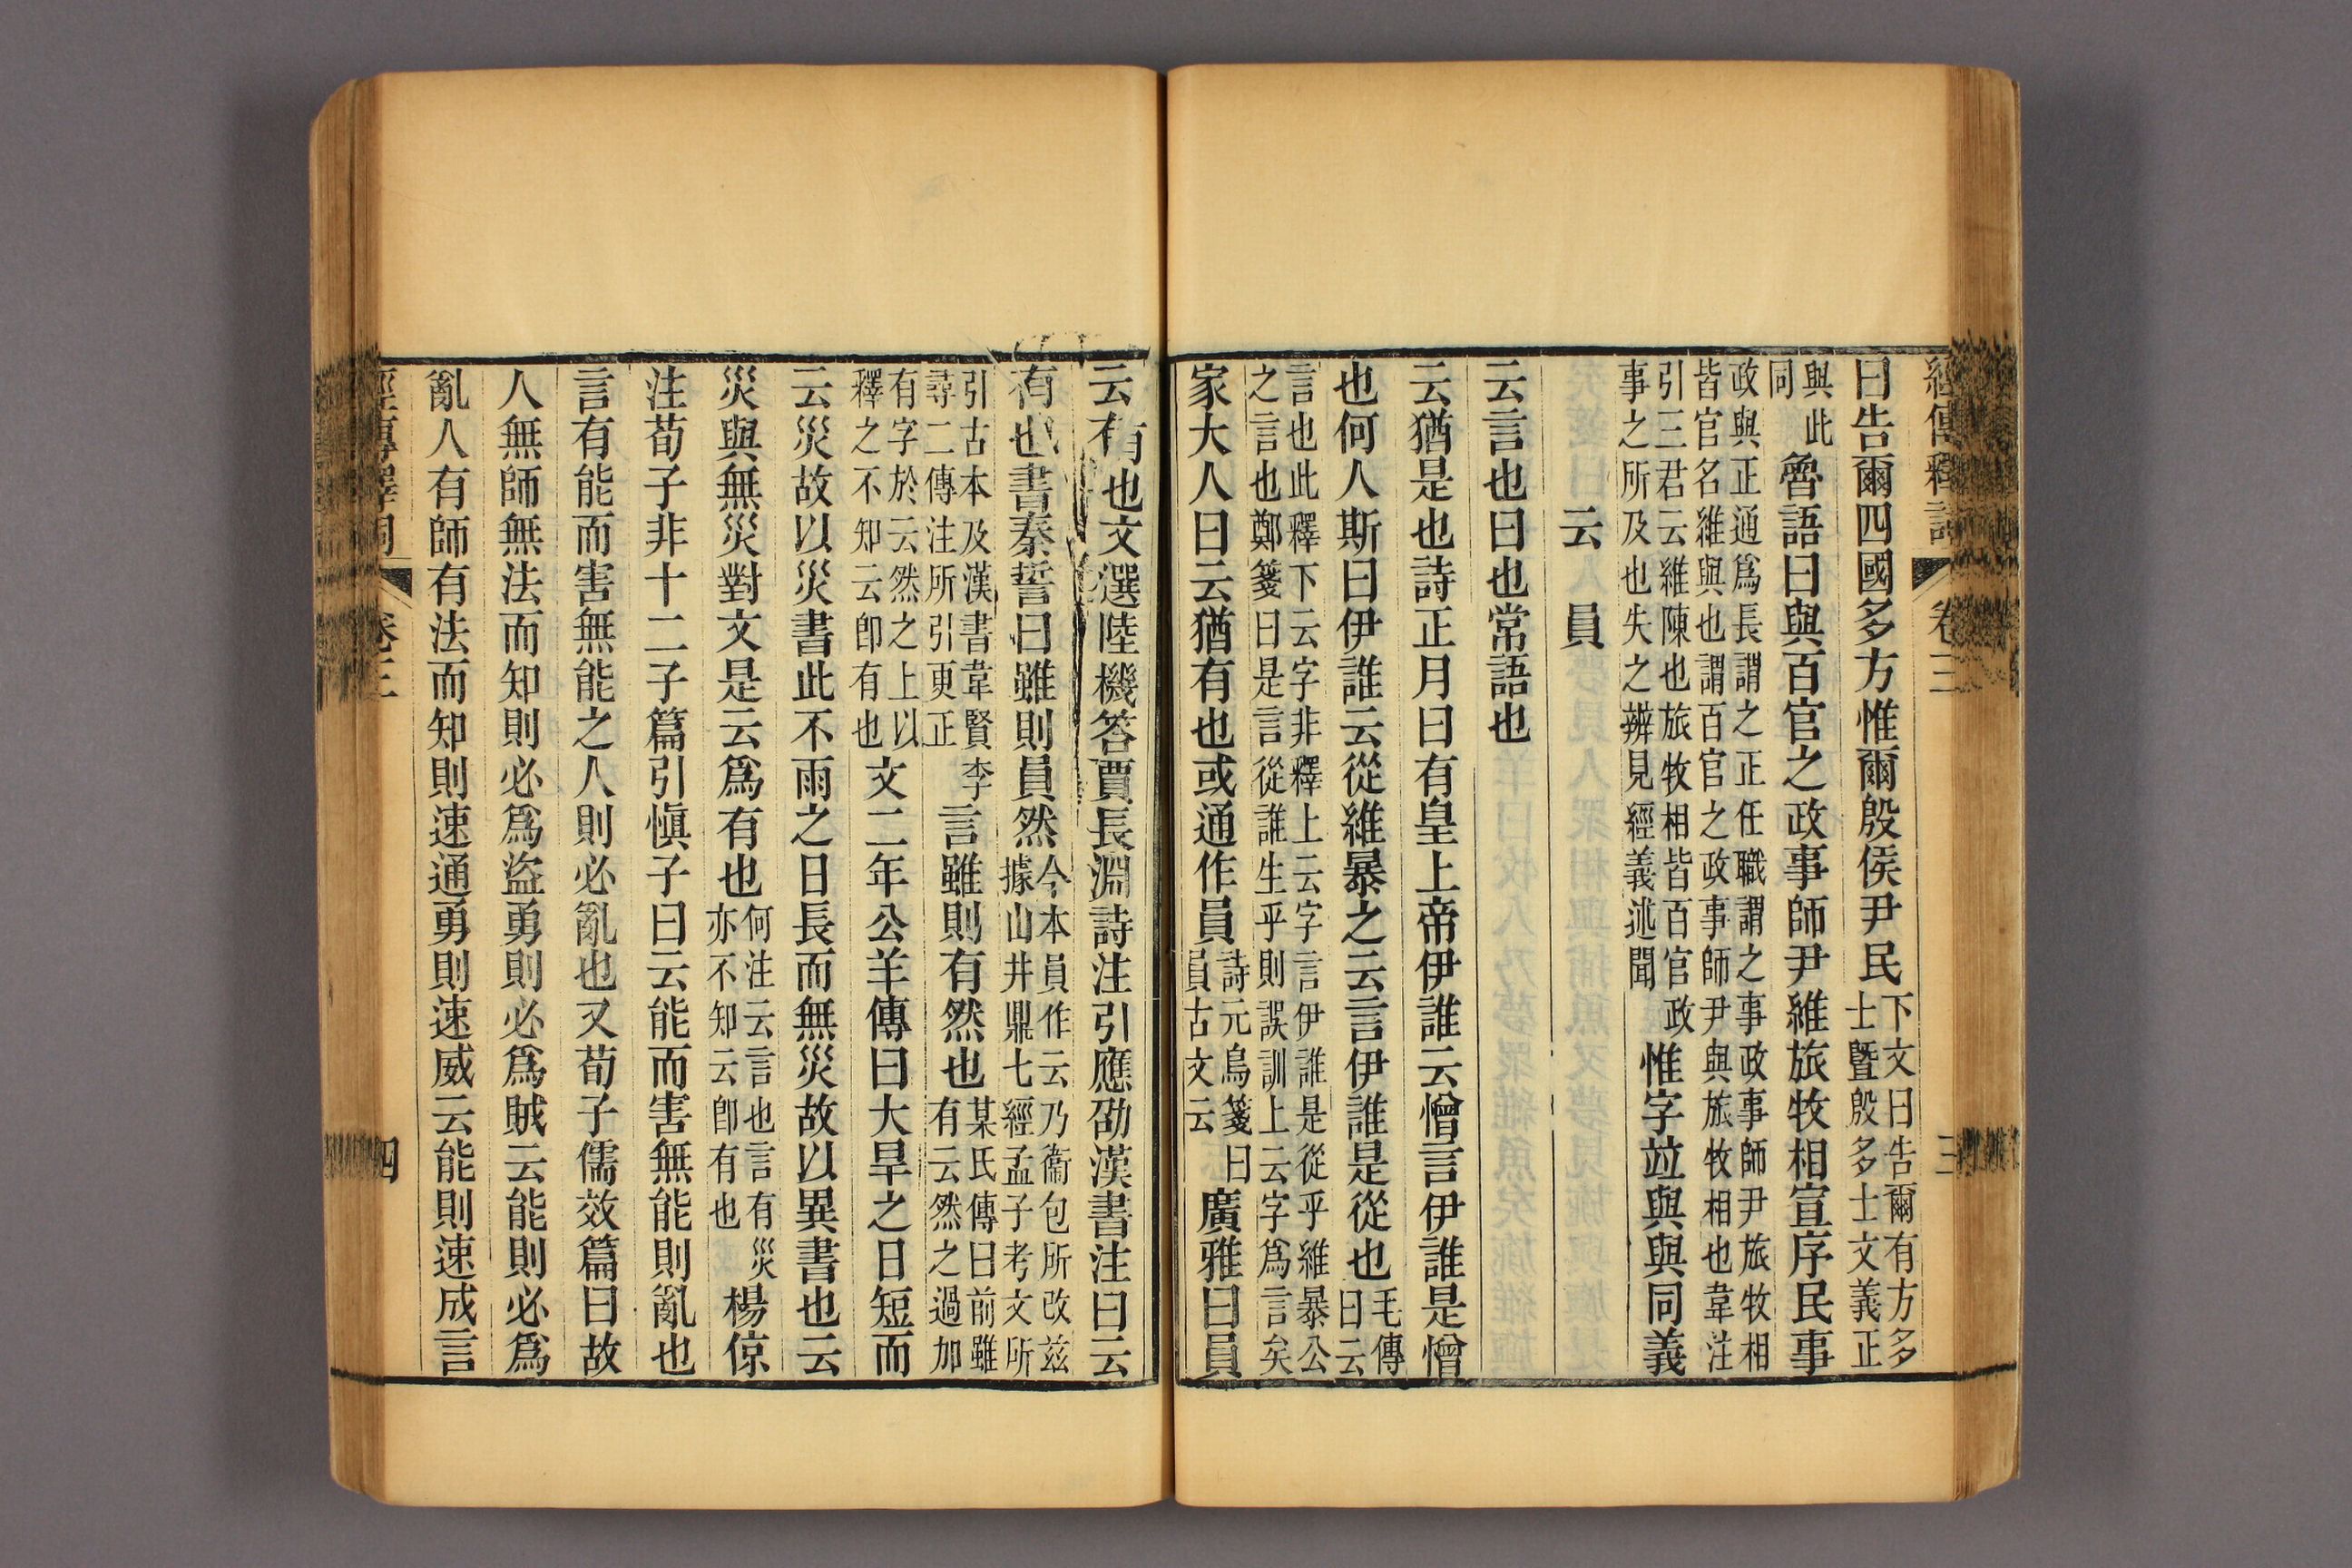 經傳釋詞 卷三 三
曰告爾四國多方惟爾殷侯尹民下文曰告爾有方多士暨殷多士文義正
與此同魯語曰與百官之政事師尹維旅牧相宣序民事
政與正通爲長謂之正任職謂之事政事師尹旅牧相皆官名維與也謂百官之政事師尹與旅牧相也韋注
引三君云維陳也旅牧相皆百官政事之所及也失之辨見經義述聞惟字竝與與同義
云 員
云言也曰也常語也
云猶是也詩正月曰有皇上帝伊誰云憎言伊誰是憎
也何人斯曰伊誰云從維暴之云言伊誰是從也毛傳曰云
言也此釋下云字非釋上云字言伊誰是從乎維暴公之言也鄭箋曰是言從誰生乎則誤訓上云字爲言矣
家大人曰云猶有也或通作員詩元鳥箋曰員古文云廣雅曰員
云有也文選陸機答賈長淵詩注引應劭漢書注曰云
有也書秦誓曰雖則員然今本員作云乃衞包所改茲據山井鼎七經孟子考文所
引古本及漢書韋賢李尋二傳注所引更正言雖則有然也某氏傳曰前雖有云然之過加
有字於云然之上以釋之不知云卽有也文二年公羊傳曰大旱之日短而
云災故以災書此不雨之日長而無災故以異書也云
災與無災對文是云爲有也何注云言也言有災亦不知云卽有也楊倞
注荀子非十二子篇引愼子曰云能而害無能則亂也
言有能而害無能之人則必亂也又荀子儒效篇曰故
人無師無法而知則必爲盜勇則必爲賊云能則必爲
亂人有師有法而知則速通勇則速威云能則速成言
經傳釋詞 卷三 四